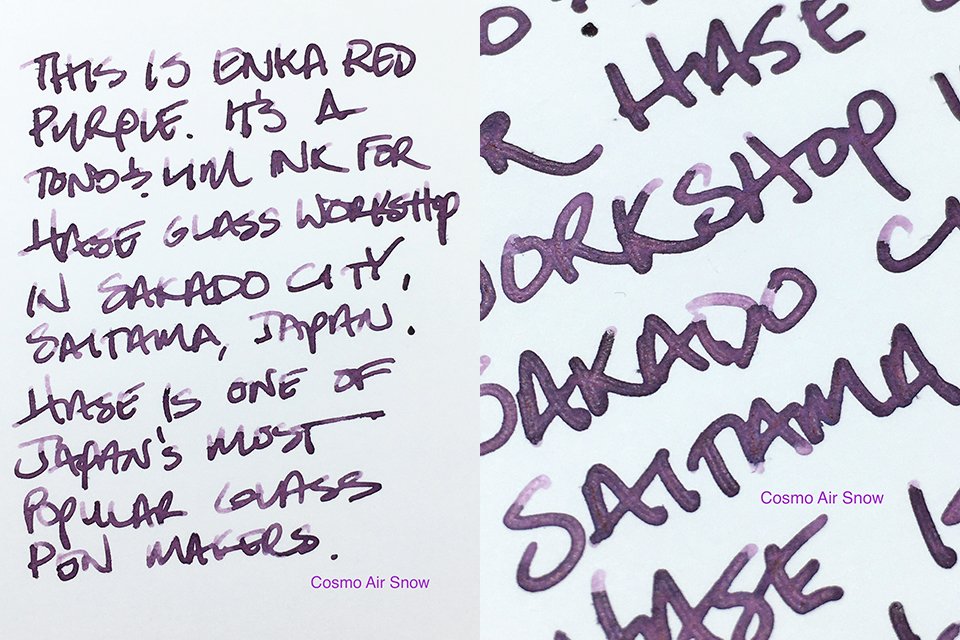 THIS IS ENKA RED
PURPLE. IT'S A
TONO & LIM INK FOR
HASE GLASS WORKSHOP
IN SAKADO CITY,
SAITAMA, JAPAN.
HASE IS ONE OF
JAPAN'S MOST
POPULAR GLASS
PEN MAKERS.
Cosmo Air Snow
HASE
WORKSHOP
SAKADO
SAITAMA
Cosmo Air Snow
HASE